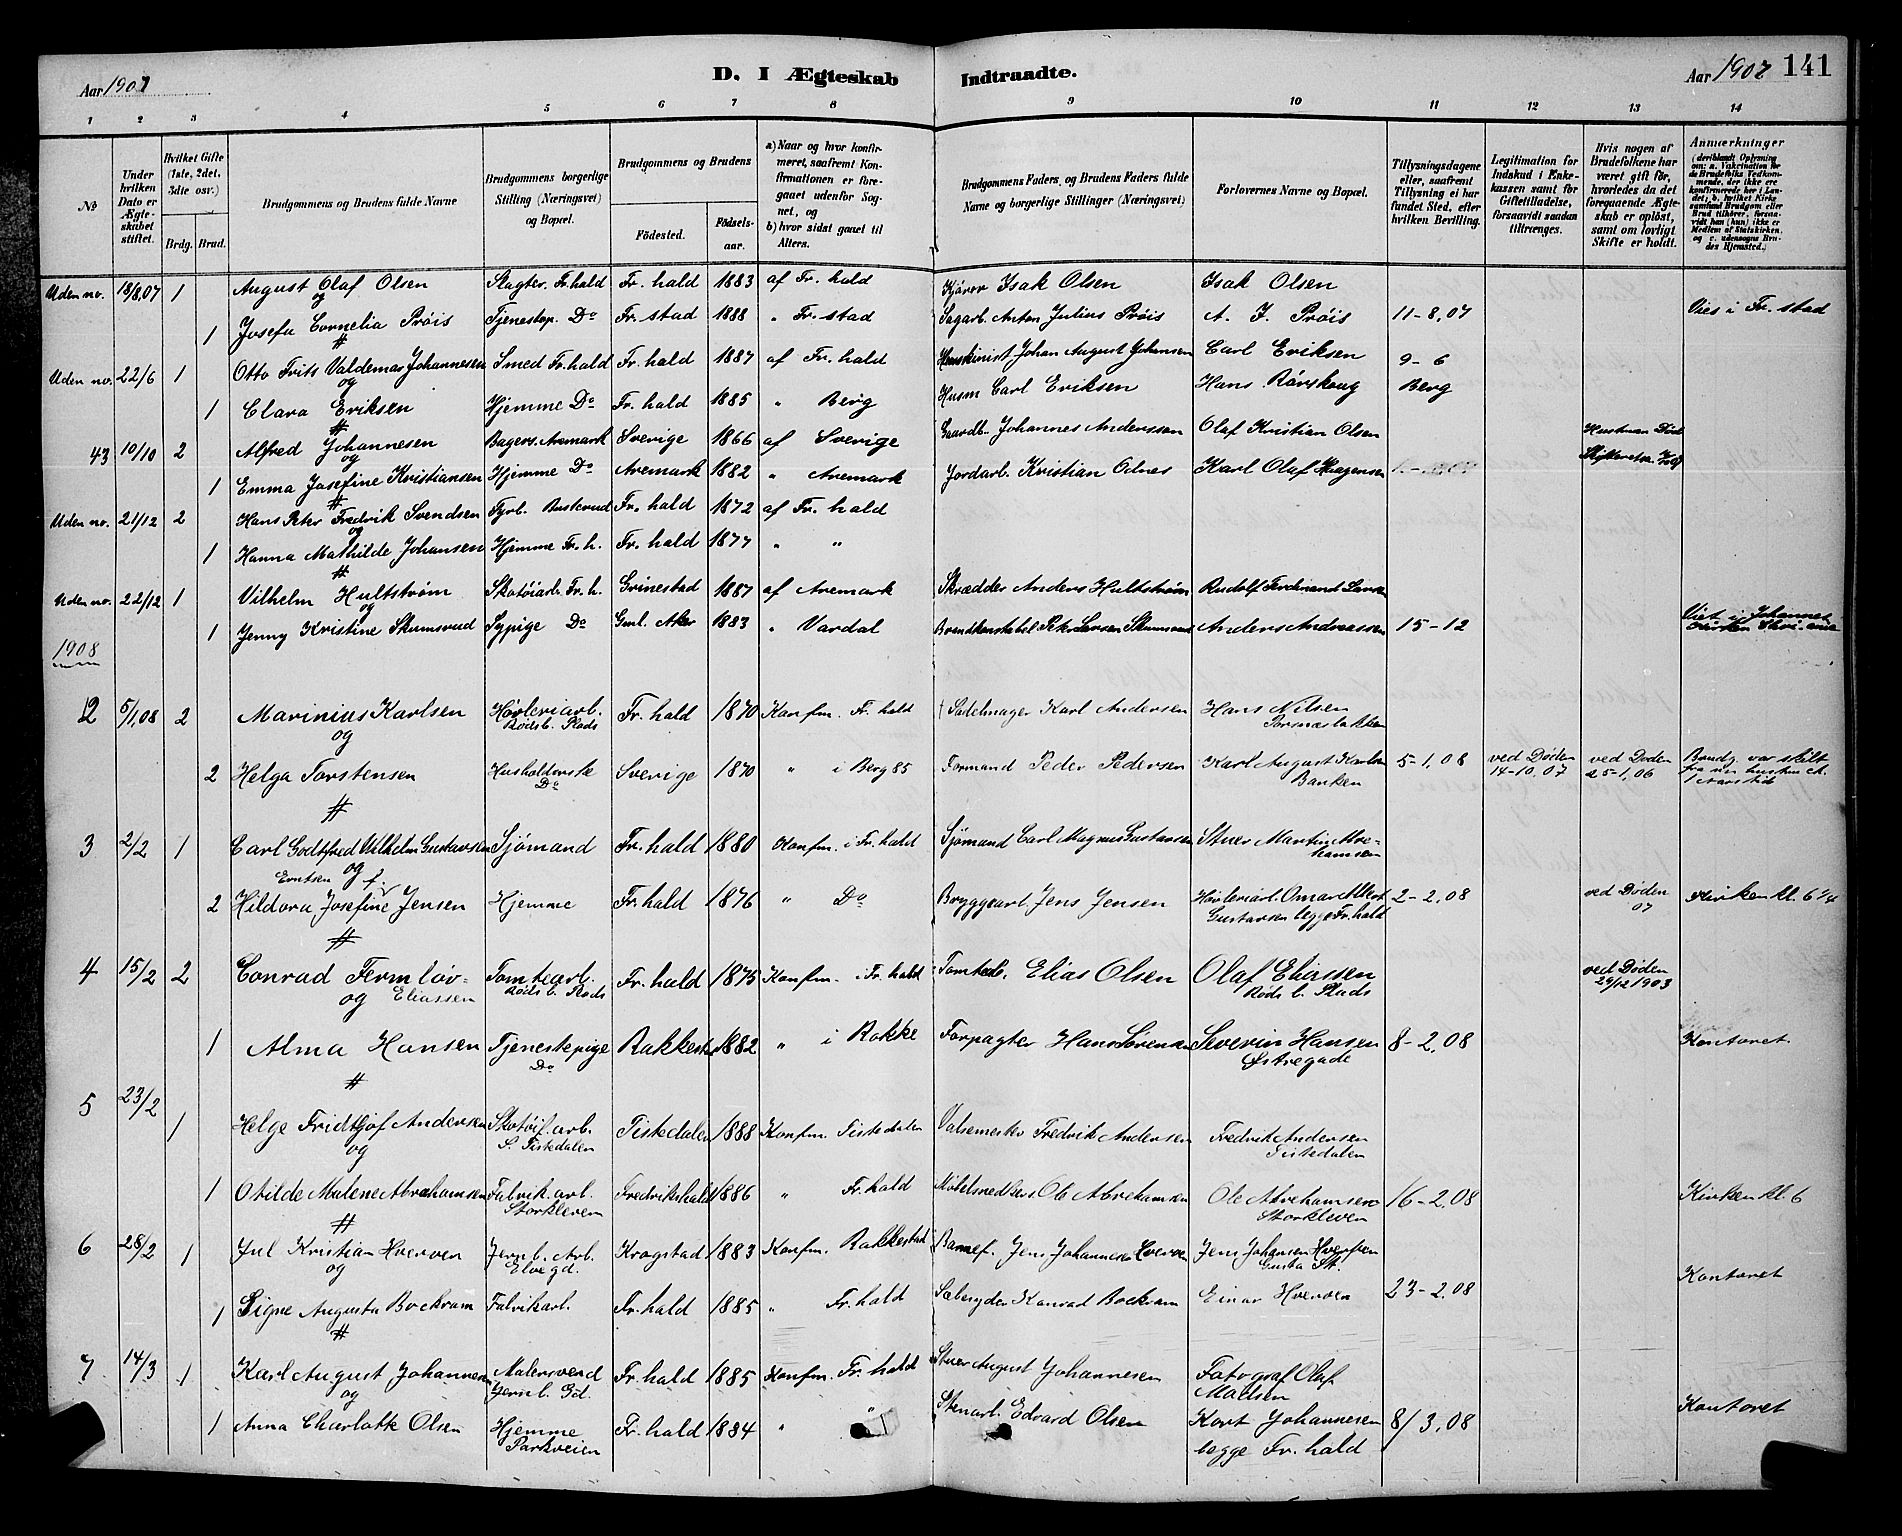 Aar 1907
D. I Ægteskab
Indtraadte.
Aar 1907 141
1 2 3 4 5 6 7 8 9 10 11 12 13 14
№
Under hvilken Dato er Ægteskabet stiftet.
Hvilket Gifte (1ste, 2det, 3dte osv.)
Brdg. Brud.
Brudgommens og Brudens fulde Navne
Brudgommens borgerlige Stilling (Næringsvei) og Bopæl.
Brudgommens og Brudens
Fødested.
Fødsels-aar.
a) Naar og hvor konfirmeret, saafremt Konfirmationen er foregaaet udenfor Sognet, og
b) hvor sidst gaaet til Alters.
Brudgommens Faders, og Brudens Faders fulde Navne og borgerlige Stillinger (Næringsvei)
Forlovernes Navne og Bopæl.
Tillysningsdagene eller, saafremt Tillysning ei har fundet Sted, efter hvilken Bevilling.
Legitimation for Indskud i Enkekassen samt for Giftetilladelse, forsaavidt saadan tiltrænges.
Hvis nogen af Brudefolkene har været gift før, hvorledes da det foregaaende Ægteskab er opløst, samt om lovligt Skifte er holdt.
Anmærkninger
(deriblandt Oplysning om: a. Vakcination for de Brudefolks Vedkommende, der ikke ere konfirmerede her i Landet; b. hvilket Kirkesamfund Brudgom eller Brud tilhører, forsaavidt han (hun) ikke er Medlem af Statskirken. og c. udensogns Brudes Hjemsted.)
Uden no. 18/8.07 1 August Olaf Olsen Slagter. Fr.hald Fr. hald 1883 af Fr. hald Kjører Isak Olsen Isak Olsen
og
1 Josefa Cornelia Prøis Tjenestep. Do Fr. stad 1888 " Fr. stad Sagarb. Anton Julius Prøis A. J. Prøis 11-8.07 Vies i Fr. stad
#
Uden no. 22/6 1 Otto Frits Valdemas Johannesen Smed Fr.hald Fr. hald 1887 af Fr. hald Maskinist Johan August Johansen Carl Eriksen 9-6
og
1 Clara Eriksen Hjemme Do Fr. hald 1885 " Berg Husm Carl Eriksen Hans Rørskoug Berg
#
43 10/10 2 Alfred Johannesen Bagers. Aremark Sverige 1866 af Sverige Gaardb. Johannes Anderssen Olaf Kristian Olsen Hustruen Død
og
1 Emma Josefine Kristiansen Hjemme Do Aremark 1882 " Aremark Jordarb. Kristian Odnes Karl Olaf Haagensen
#
Uden no. 21/12 2 Hans Peter Fredrik Svendsen Fyrb. Busterud Fr. hald 1872 af Fr. hald
og
1 Hanna Mathilde Johansen Hjemme Fr. h. Fr. hald 1877 " "
#
Uden no. 22/12 1 Vilhelm Hultstrøm Skotøiarb. Fr. h. Grinestad 1887 af Aremark Skrædder Anders Hultstrøm Rudolf Ferdinand Larsen
og
1 Jenny Kristine Skumsrud Sypige Do Gml. Aker 1883 " Vardal Brandkonstabel Petr Larsen Skumsrud Anders Andreassen 15-12 Viet i Johannes
1908
2 5/1.08 2 Marinius Karlsen Høvleriarb. Fr. hald 1870 Konfm. Fr. hald Sadelmager Karl Andersen Hans Nilsen
og Rødsb. Plads
2 Helga Torstensen Husholderske Sverige 1870 " i Berg 85 Formand Peder Pedersen Karl August Karlsen 5-1.08 ved Døden ved Døden Brudg. var skilt
Do Banken 14-10.07 25-1.06
#
3 2/2 1 Carl Godtfred Vilhelm Gustavsen Sjømand Fr. hald 1880 Konfm. i Fr. hald Sjømand Carl Magnus Gustavsen Stuer Martin Abra-
hamsen
Erntsen og f.
2 Hildora Josefine Jensen Hjemme Fr. hald 1876 " Do Bryggearb. Jens Jensen Høvleriarb. Omar Albert 2-2.08 ved Døden Kirken kl. 6 1/4
Gustavsen begge Fr. hald 07
#
4 15/2 2 Conrad Fermløv- Tomtearb. Fr. hald 1875 Konfm. i Fr. hald Tomtearb. Elias Olsen Olaf Eliassen ved Døden
og Eliassen Røds b. Plads Røds b. Plads 29/12 1903
1 Alma Hansen Tjenestepige Rakkestad 1882 " i Rokke Forpagter Hans Sørensen Severin Hansen 8-2.08 Kontoret
Do Østregade
#
5 23/2 1 Helge Fridtjof Andersen Skotøif. arb. Tistedalen 1888 Konfm. Tistedalen Valsemester Fredrik Andersen Fredrik Andersen
og S. Tistedalen Tistedalen
1 Otilde Malene Abrahamsen Fabrik. arb. Fredrikshald 1886 " Fr. hald Møbelsnedkers Ole Abrahamsen Ole Abrahamsen 16-2.08 Kirken kl. 6
Storkleven Storkleven
#
6 28/2 1 Jul Kristian Hverven Jernb. Arb. Krogstad 1883 Konfm. Rakkestad Banef. Jens Johannesen Hverven Jens Johansen Hverven
og Elvegd. Gusta St.
1 Signe Augusta Bockram Fabrikarb. Fr. hald 1885 " Fr. hald Sæbsyder Konrad Bockram Einar Hverven 23-2.08 Kontoret
#
7 14/3 1 Karl August Johannesen Malersvend Fr. hald 1885 Konfm. Fr. hald Stuer August Johannesen Fotograf Olaf
og Jernb. Gd. Madsen
1 Anna Charlotte Olsen Hjemme Fr. hald 1884 " " Stenarb. Edvard Olsen Kort Johannesen 8/3.08 Kontoret
Parkveien begge Fr. hald